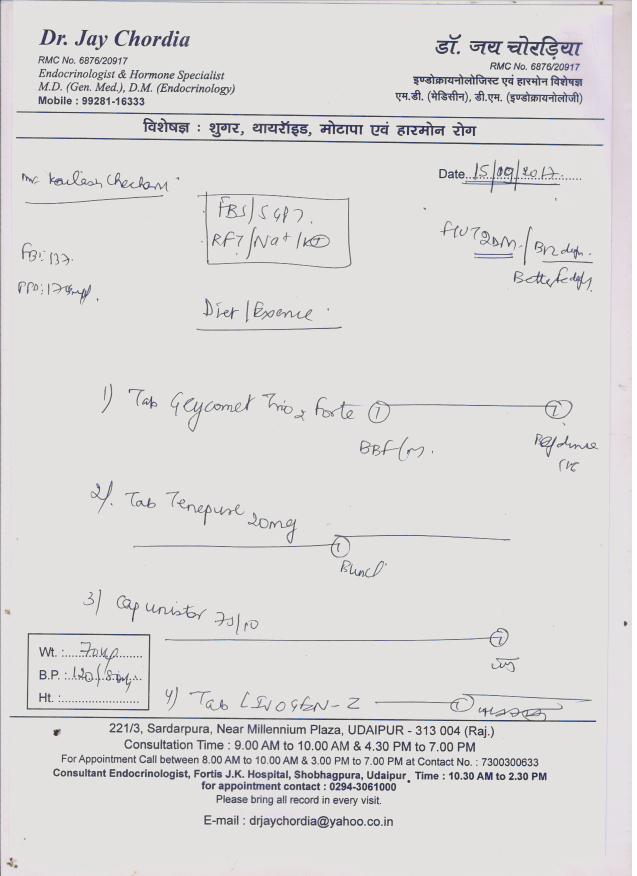 Dr. Jay Chordia
RMC No. 6876/20917
Endocrinologist & Hormone Specialist
M.D. (Gen. Med.), D.M. (Endocrinology)
Mobile : 99281-16333
डॉ. जय चोरड़िया
RMC No. 6876/20917
इण्डोक्रायनोलोजिस्ट एवं हारमोन विशेषज्ञ
एम.डी. (मेडिसीन), डी.एम. (इण्डोक्रायनोलोजी)
विशेषज्ञ : शुगर, थायरॉइड, मोटापा एवं हारमोन रोग
Date 15/09/2017
Mr.
FBS/SGPT
RFT/Na+/K+
T2DM/
FBS:137
Diet/
1) Tab Glycomet Trio 2 Forte 1 1
BBF
2) Tab Tenepure 20mg
1
3) Cap Unistar 75/10
1
Wt. : 70kg
B.P. : 120/80
Ht. :
4) Tab LIVOGEN-Z 1
221/3, Sardarpura, Near Millennium Plaza, UDAIPUR - 313 004 (Raj.)
Consultation Time : 9.00 AM to 10.00 AM & 4.30 PM to 7.00 PM
For Appointment Call between 8.00 AM to 10.00 AM & 3.00 PM to 7.00 PM at Contact No. : 7300300633
Consultant Endocrinologist, Fortis J.K. Hospital, Shobhagpura, Udaipur, Time : 10.30 AM to 2.30 PM
for appointment contact : 0294-3061000
Please bring all record in every visit.
E-mail : drjaychordia@yahoo.co.in